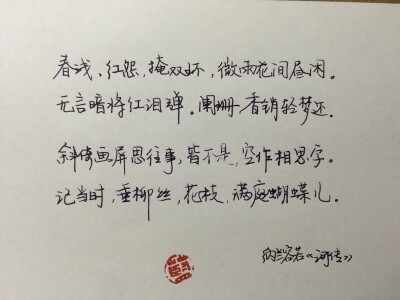 春浅、红怨,掩双环,微雨花间昼闲。
无言暗将红泪弹。阑珊,香销轻梦还。
斜倚画屏思往事,皆不是,空作相思字。
记当时,垂柳丝,花枝,满庭蝴蝶儿。
纳兰容若《河传》